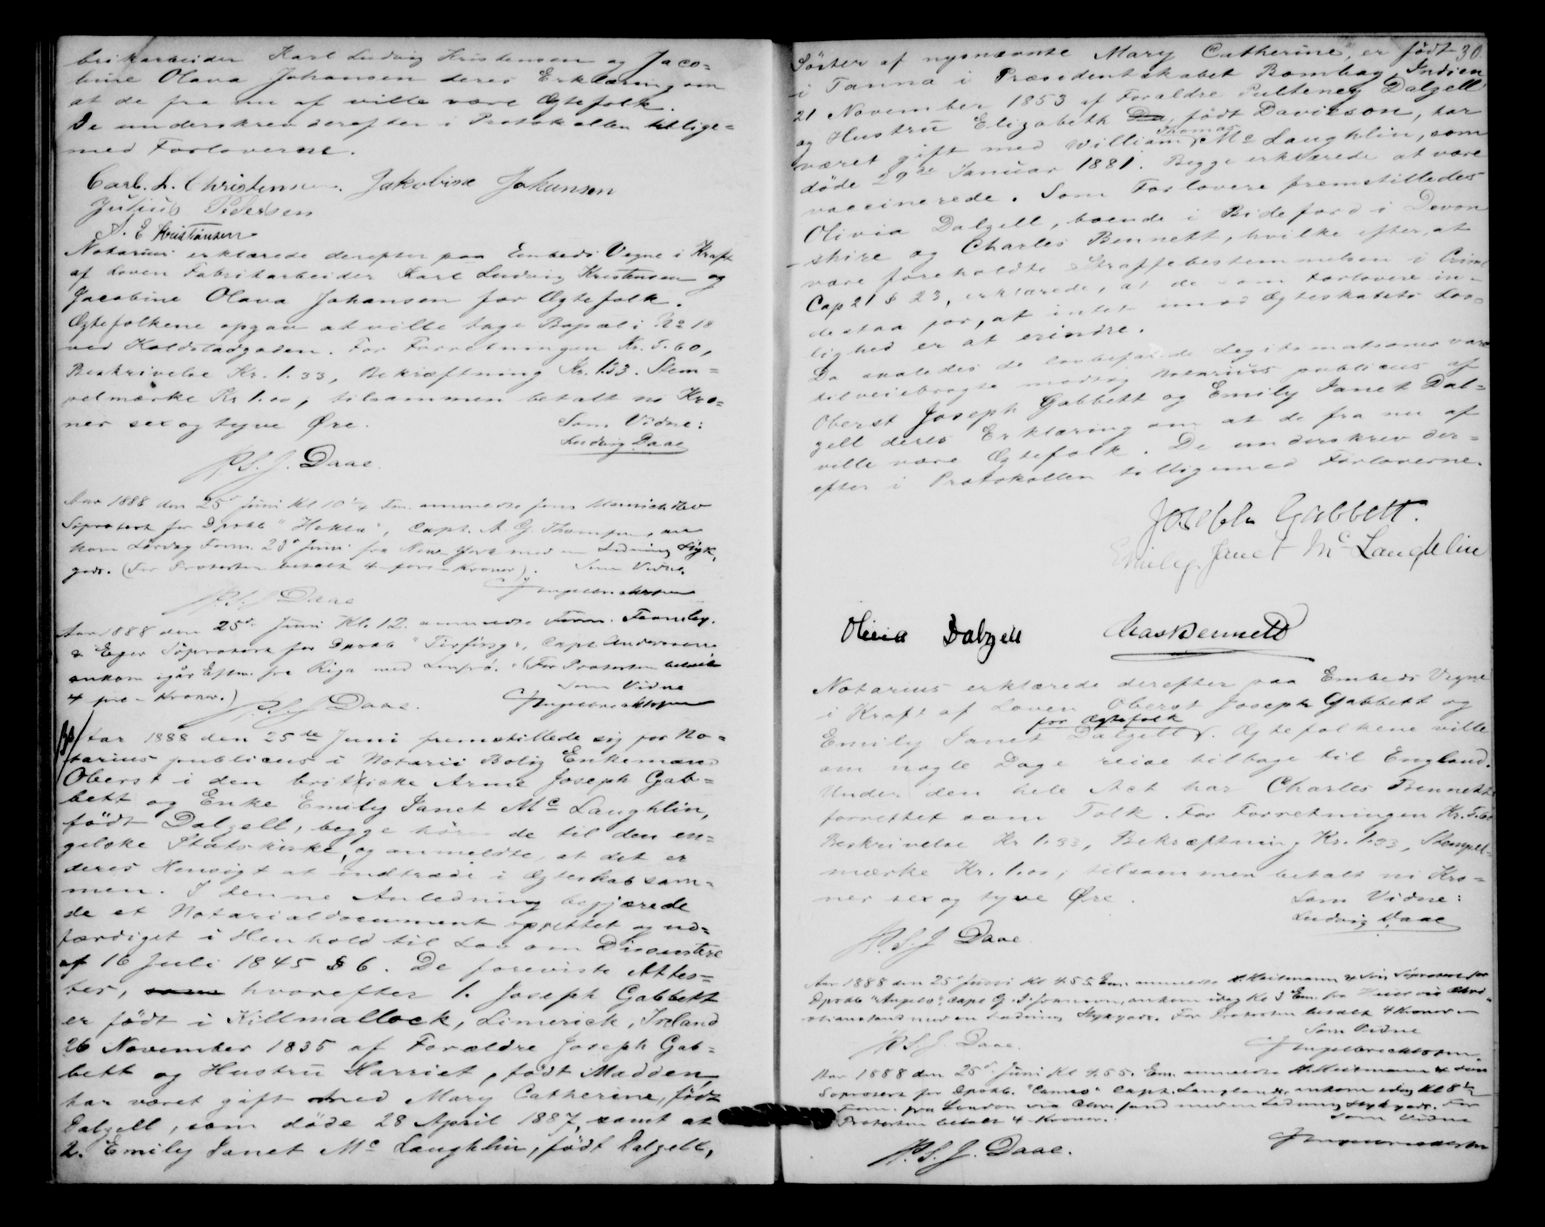 brikarbeider Karl Ludvig Kristensen og Jaco=
bine Olava Johansen deres Erklæring om
at de fra nu af ville være Ægtefolk.
De underskrev derefter i Protokollen tillige=
med Forloverne.
Carl. L. Christensen. Jakobine Johansen
Julius Pedersen
E Kristiansen
Notarius erklærede derefter paa Embeds Vegne i Kraft
af Loven Fabrikarbeider Karl Ludvig Kristensen og
Jacobine Olava Johansen for Ægtefolk.
Ægtefolkene opgav at ville tage Bopæl i No 18
ved Holdstadgaden. For Forretningen Kr. 5.60,
Beskrivelse Kr. 1.33, Bekræftning Kr. 1.33. Stem=
velmærke Kr 1.00, tilsammen betalt ni Kro=
ner sex og tyve Øre.
Som Vidne:
Ludvig Daae
P.S.J. Daae.
Aar 1888 den 25d Juni Kl 10 1/2 Fm. anmeldte Jens
Søprotest for Dpskb "Hekla", Capt. A G Thomsen, an
kom Lørdag Form. 23d Juni fra New York med en Ladning Styk,
gods. (For Protesten betalt 4 fire Kroner). Som Vidne.
P.S.J Daae
Aar 1888 den 25de Juni Kl. 12. anmeldte Firm. Fearnley
& Eger Søprotest for Dpskb "Tirfing", Capt Andersen
ankom igår Eftm. fra Riga med Linfrø. (For Protesten betalt
4 fire Kroner.)
Som Vidne
P.S.J Daae.
Aar 1888 den 25de Juni fremstillede sig for No=
tarius publicus i Notarii Bolig Enkemand
Oberst i den britiske Arme Joseph Gab=
bett og Enke Emily Janet Mc Laughlin,
født Dalzell, begge hørende til den en=
gelske Statskirke, og anmeldte, at det er
deres Hensigt at indtræde i Ægteskab sam=
men. I denne Anledning begjærede
de et Notarialdocument oprettet og ud=
færdiget i Henhold til Lov om Dissentere
af 16 Juli 1845 § 6. De foreviste Attes=
ter, hvorefter 1. Joseph Gabbett
er født i Killmallock, Limerick, Irland
26 November 1835 af Forældre Joseph Gab=
bett og Hustru Harriet, født Madden,
har været gift med Mary Catherine, født
Dalzell, som døde 28 April 1887, samt at
2. Emily Janet Mc Laughlin, født Dalzell,
30
Søster af nysnævnte Mary Catherine, er født
i Tanna i Præsidentskabet Bombay, Indien
21 November 1853 af Forældre Pulteney Dalzell
og Hustru Elizabeth født Davidson, har
været gift med William Thomas Mc Laughlin, som
døde 29de Januar 1881. Begge erklærede at være
vaccinerede. Som Forlovere fremstilledes
Olivia Dalzell, boende i Bideford i Devon
shire og Charles Bennett, hvilke efter at
være foreholdte Straffebestemmelsen i Criml
Cap 21 § 23, erklærede, at de som Forlovere in=
destaa for, at intet imod Ægteskabets Lov=
lighed er at erindre.
Da saaledes de lovbefalede Legitimationer vare
tilveiebragte modtog Notarius publicus af
Oberst Joseph Gabbett og Emily Janet Dal=
zell deres Erklæring om at de fra nu af
ville være Ægtefolk. De underskrev der=
efter i Protokollen tilligemed Forloverne.
Joseph Gabbett.
Emily Janet Mc Laughlin
Olivia Dalzell Chas Bennett
Notarius erklærede derefter paa Embeds Vegne
i Kraft af Loven Oberst Joseph Gabbett og
Emily Janet Dalzell for Ægtefolk. Ægtefolkene ville
om nogle Dage reise tilbage til England.
Under den hele Act har Charles Bennett
forrettet som Tolk. For Forretningen Kr. 5.60
Beskrivelse Kr 1.33, Bekræftning Kr. 1.33, Stempel=
mærke Kr. 1.00, tilsammen betalt ni Kro=
ner sex og tyve Øre.
Som Vidne:
Ludvig Daae
P.S.J Daae.
Aar 1888 den 25d Juni Kl 4.55 Em. anmeldte H. Heitmann & Søn Søprotest for
Dpskb "Angelo", Capt. ankom idag Kl 3 Em. fra Hull via Chri=
stianssand med en Ladning Stykgods. For Protesten betalt 4 Kroner
Som Vidne
P.S.J Daae.
Aar 1888 den 25d Juni Kl 4.55. Em. anmeldte H. Heitmann & Søn
Søprotest for Dpskb. "Cameo" Capt. Langlands, ankom idag Kl 8 1/2
Form. fra London via Chr.sand med en Ladning Stykgods. For
Protesten betalt 4 Kroner.
Som Vidne
P.S.J. Daae.